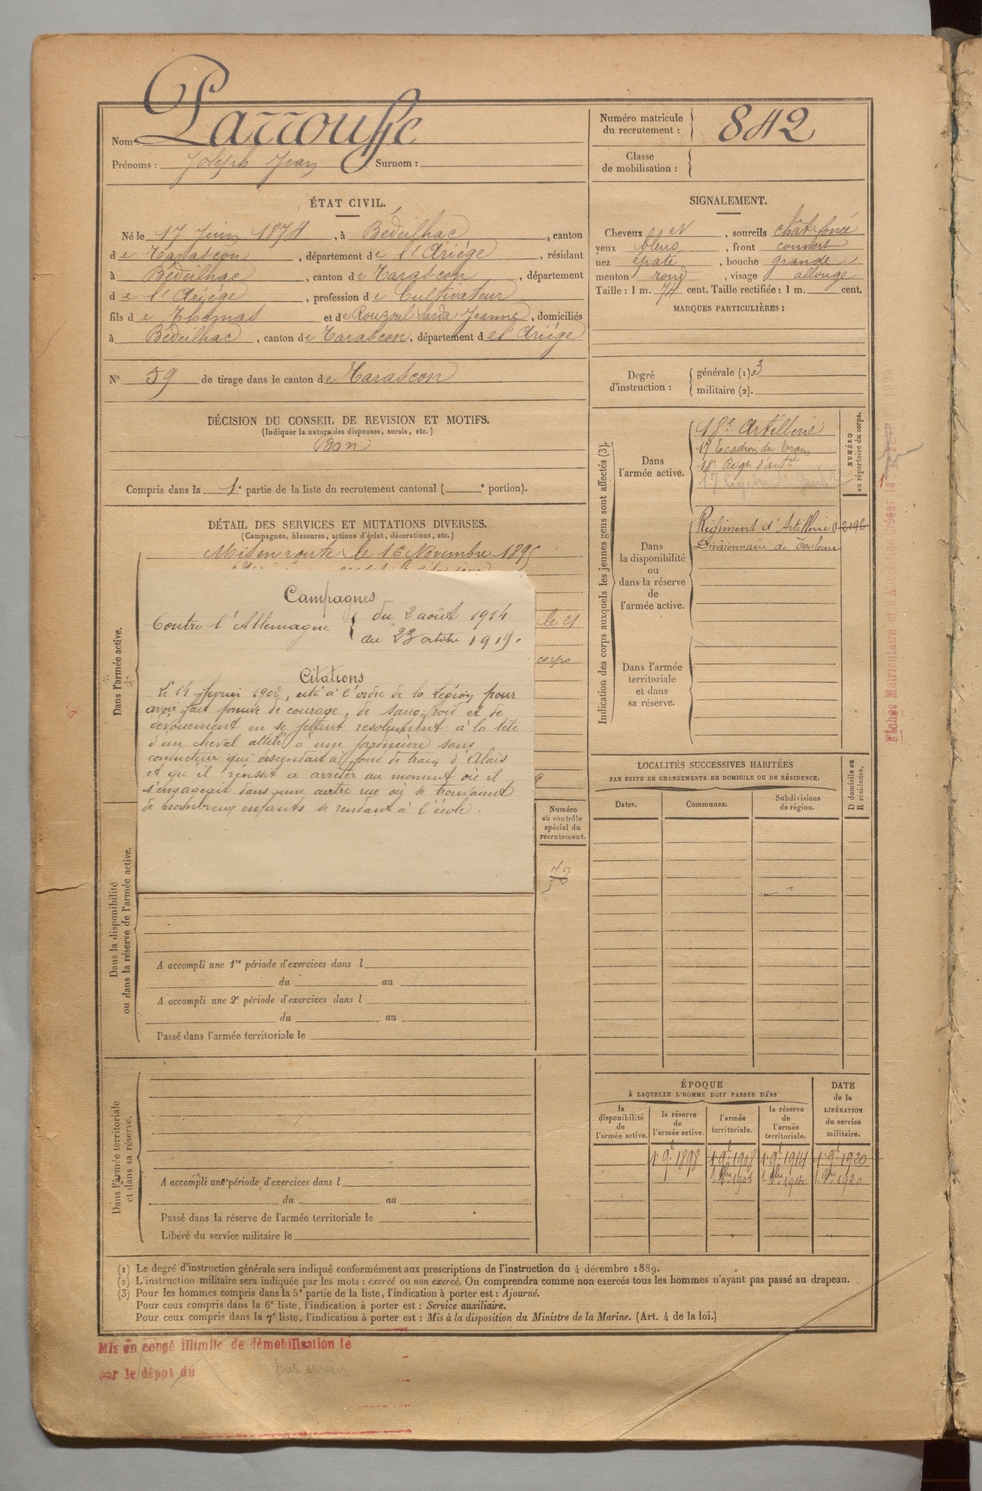 Nom Larrousse
Prénoms : Joseph Jean Surnom :
Numéro matricule du recrutement : 842
Classe de mobilisation :
ÉTAT CIVIL.
Né le 17 Juin 1874, à Bédeilhac, canton
de Tarascon, département de l'Ariège, résidant
à Bédeilhac, canton de Tarascon, département
de l'Ariège, profession de Cultivateur
fils de Thomas et de Rouzoul Sarda Jeanne, domiciliés
à Bédeilhac, canton de Tarascon, département de l'Ariège
N° 59 de tirage dans le canton de Tarascon
SIGNALEMENT.
Cheveux , sourcils chat. foncé
yeux bleus, front couvert
nez épaté, bouche grande
menton rond, visage allongé
Taille : 1 m. 74 cent. Taille rectifiée : 1 m. cent.
MARQUES PARTICULIÈRES :
Degré d'instruction : générale (1). 3
militaire (2).
DÉCISION DU CONSEIL DE REVISION ET MOTIFS.
(Indiquer la nature des dispenses, sursis, etc.)
Bon
Compris dans la 1e partie de la liste du recrutement cantonal ( e portion).
DÉTAIL DES SERVICES ET MUTATIONS DIVERSES.
(Campagnes, blessures, actions d'éclat, décorations, etc.)
Mis en route le 16 Novembre 1895
le 21
corps
Campagnes
Contre l'Allemagne du 2 août 1914
au 23 octobre 1915.
Citations
Le 14 février 1902, cité à l'ordre de la Légion pour
avoir fait preuve de courage, de sang-froid et de
dévouement en se jettant résolument à la tête
d'un cheval attelé à une jardinière sans
conducteur qui descendait à fond de train d'Alais
et qu'il réussit à arrêter au moment où il
s'engageait dans une autre rue où se trouvaient
de nombreux enfants se rendant à l'école.
Dans l'armée active.
Dans la disponibilité ou dans la réserve de l'armée active.
Numéro au contrôle spécial du recrutement.
A accompli une 1re période d'exercices dans l
du au
A accompli une 2e période d'exercices dans l
du au
Passé dans l'armée territoriale le
Dans l'armée territoriale et dans sa réserve.
A accompli une période d'exercices dans l
du au
Passé dans la réserve de l'armée territoriale le
Libéré du service militaire le
Indication des corps auxquels les jeunes gens sont affectés (3).
Dans l'armée active.
18e Artillerie
17 Escadron du train
18e Régt d'artie
17e Légion
NUMÉRO au répertoire du corps.
Dans la disponibilité ou dans la réserve de l'armée active.
Régiment d'Artillerie 2196
Divisionnaire de Toulouse
Dans l'armée territoriale et dans sa réserve.
LOCALITÉS SUCCESSIVES HABITÉES
PAR SUITE DE CHANGEMENTS DE DOMICILE OU DE RÉSIDENCE.
Dates.
Communes.
Subdivisions de région.
D domicile ou R résidence.
ÉPOQUE
À LAQUELLE L'HOMME DOIT PASSER DANS
DATE de la LIBÉRATION du service militaire.
la disponibilité de l'armée active.
la réserve de l'armée active.
l'armée territoriale.
la réserve de l'armée territoriale.
1 9bre 1898
1 9bre 1908
1 9bre 1914
1 9bre 1920
(1) Le degré d'instruction générale sera indiqué conformément aux prescriptions de l'instruction du 4 décembre 1889.
(2) L'instruction militaire sera indiquée par les mots : exercé ou non exercé. On comprendra comme non exercés tous les hommes n'ayant pas passé au drapeau.
(3) Pour les hommes compris dans la 5e partie de la liste, l'indication à porter est : Ajourné.
Pour ceux compris dans la 6e liste, l'indication à porter est : Service auxiliaire.
Pour ceux compris dans la 7e liste, l'indication à porter est : Mis à la disposition du Ministre de la Marine. (Art. 4 de la loi.)
Mis en congé illimité de démobilisation le
par le dépôt du